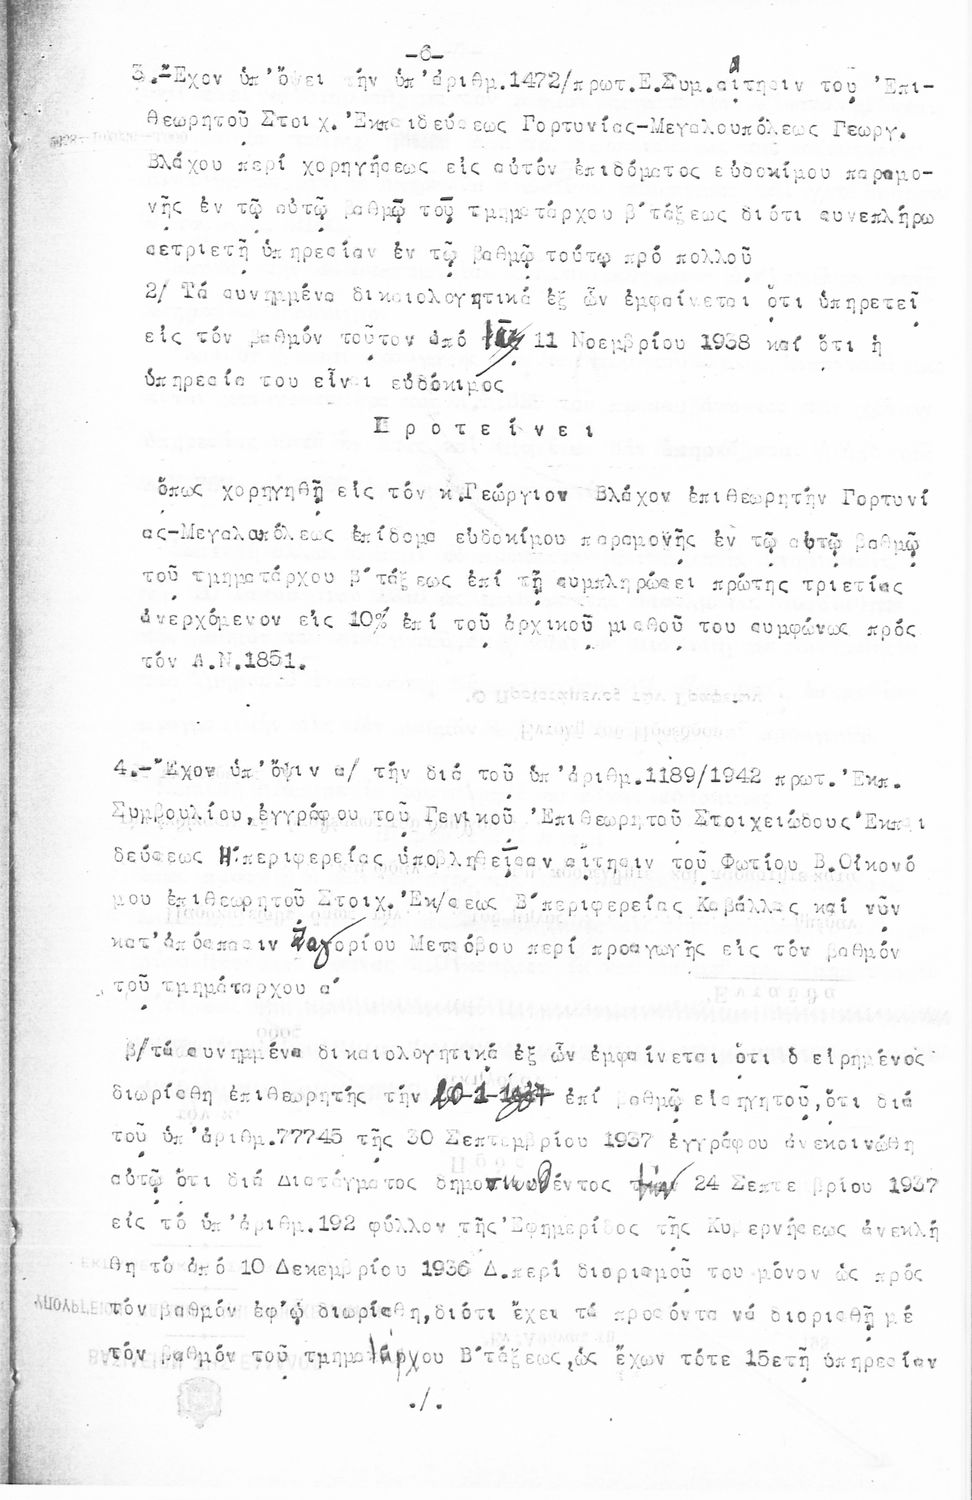 -6-
3.-Ἔχον ὑπ'ὄψει τήν ὑπ'ἀριθμ.1472/πρωτ.Ε.Συμ.αἴτησιν τοῦ Ἐπι-
θεωρητοῦ Στοιχ.Ἐκπαιδεύσεως Γορτυνίας-Μεγαλουπόλεως Γεωργ.
Βλάχου περί χορηγήσεως εἰς αὐτόν ἐπιδόματος εὐδοκίμου παραμο-
νῆς ἐν τῷ αὐτῷ βαθμῷ τοῦ τμηματάρχου β΄τάξεως διότι συνεπλήρω
σετριετῆ ὑπηρεσίαν ἐν τῷ βαθμῷ τούτῳ πρό πολλοῦ
2/ Τά συνημμένα δικαιολογητικά ἐξ ὧν ἐμφαίνεται ὅτι ὑπηρετεῖ
εἰς τόν βαθμόν τοῦτον ἀπό 11 Νοεμβρίου 1938 καί ὅτι ἡ
ὑπηρεσία του εἶναι εὐδόκιμος
Προτείνει
ὅπως χορηγηθῇ εἰς τόν κ.Γεώργιον Βλάχον ἐπιθεωρητήν Γορτυνί
ας-Μεγαλαπόλεως ἐπίδομα εὐδοκίμου παραμονῆς ἐν τῷ αὐτῷ βαθμῷ
τοῦ τμηματάρχου β΄τάξεως ἐπί τῇ συμπληρώσει πρώτης τριετίας
ἀνερχόμενον εἰς 10% ἐπί τοῦ ἀρχικοῦ μισθοῦ του συμφώνως πρός
τόν Α.Ν.1851.
4.-Ἔχον ὑπ'ὄψιν α/ τήν διά τοῦ ὑπ'ἀριθμ.1189/1942 πρωτ.Ἐκπ.
Συμβουλίου,ἐγγράφου τοῦ Γενικοῦ Ἐπιθεωρητοῦ Στοιχειώδους Ἐκπαι
δεύσεως Η΄περιφερείας ὑποβληθεῖσαν αἴτησιν τοῦ Φωτίου Β.Οἰκονό
μου ἐπιθεωρητοῦ Στοιχ.Ἐκ/σεως Β΄περιφερείας Καβάλλας καί νῦν
κατ'ἀπόσπασιν Ζαγορίου Μετσόβου περί προαγωγῆς εἰς τόν βαθμόν
τοῦ τμημάταρχου α΄
β/τά συνημμένα δικαιολογητικά ἐξ ὧν ἐμφαίνεται ὅτι ὁ εἰρημένος
διωρίσθη ἐπιθεωρητής τήν 20-1-1937 ἐπί βαθμῷ εἰσηγητοῦ,ὅτι διά
τοῦ ὑπ'ἀριθμ.77745 τῆς 30 Σεπτεμβρίου 1937 ἐγγράφου ἀνεκοινώθη
αὐτῷ ὅτι διά Διατάγματος δημοσιευθέντος τήν 24 Σεπτεμβρίου 1937
εἰς τό ὑπ'ἀριθμ.192 φύλλον τῆς Ἐφημερίδος τῆς Κυβερνήσεως ἀνεκλή
θη τό ἀπό 10 Δεκεμβρίου 1936 Δ.περί διορισμοῦ του μόνον ὡς πρός
τόν βαθμόν ἐφ'ᾧ διωρίσθη,διότι ἔχει τά προσόντα νά διορισθῇ μέ
τόν βαθμόν τοῦ τμηματάρχου Β΄τάξεως,ὡς ἔχων τότε 15ετῆ ὑπηρεσίαν
./.